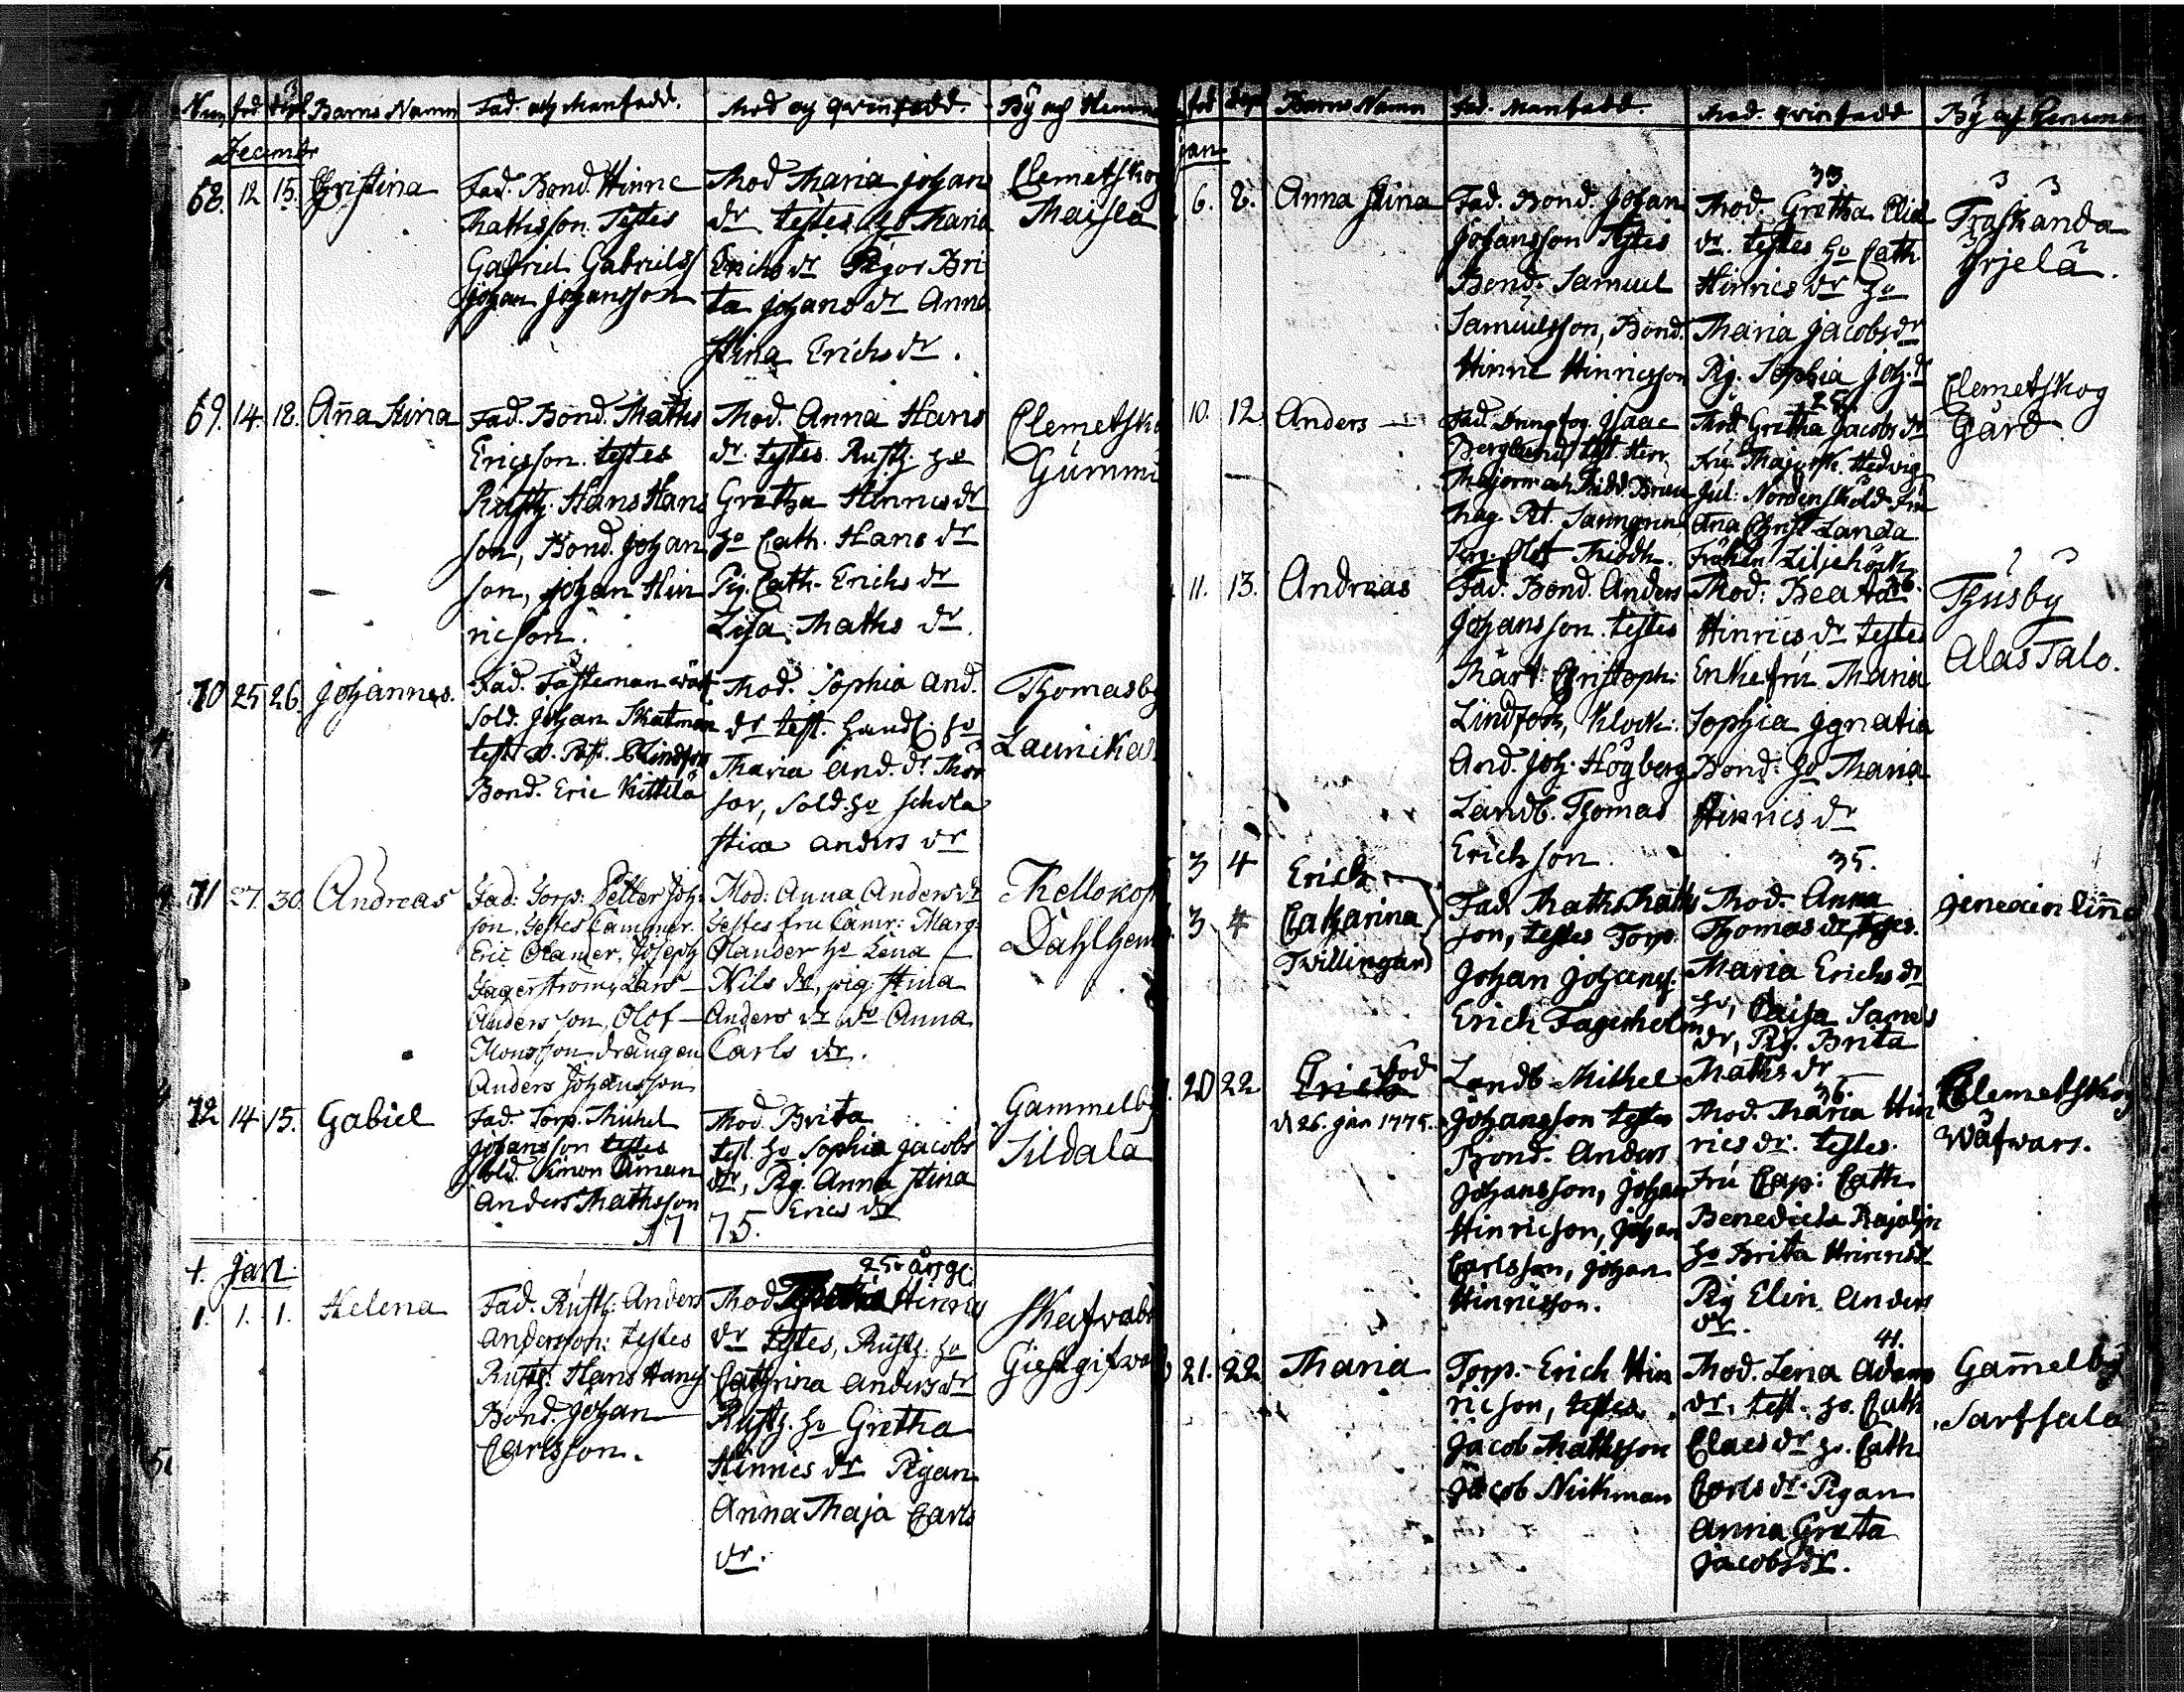 Num föd döpt Barns Namn Fad. och Manfadd. Mod och qvinfadd. By och Hemman
Decembr
68. 12 15. Christina
Fad. Bond. Hinric
Mathsson. Testes
Gabriel Gabrielss
Johan Johansson
Mod Maria Johans
dr testes ho Maria
Erichs dr Pigor Bri
ta Johans dr Anna
Stina Erichs dr.
Clemetskog
Maisla
69. 14. 18. Anna Stina
Fad. Bond. Maths
Ericsson. testes
Rustz. Hans Hans
son, Bond. Johan
son, Johan Hin
ricson.
Mod. Anna Hans
dr. testes. Rustz. ho
Gretha Hinrics dr
ho Cath. Hans dr
Pig. Cath. Erichs dr
Lisa Maths dr.
Clemetsko
Gummi
70 25 26. Johannes.
Fad. Fästeman
Sold. Johan Skatman
test.
Bond. Eric Kittilä
Mod. Sophia And.
dr test. handl. ho
Maria And. dr
sor, Sold. ho Schola
stica Anders dr
Thomasby
Launikas
71 27. 30. Andreas
Fad: Torp: Petter Joh:
son, Testes Cammer.
Eric Olander, Joseph
Fagerström, Lars
Andersson, Olof
Monsson drängen
Anders Johansson
Mod: Anna Anders dr
Testes fru Camr: Marg:
Olander ho Lena
Nils dr, pig: Stina
Anders dr do Anna
Carls dr.
Mellokos
Dahlhem
72 14 15. Gabiel
Fad. Torp. Michel
Johansson testes
Sold. Simon Öman
Anders Mathsson
Mod Brita
test. ho Sophia Jacobs
dr, Pig. Anna Stina
Erics dr
Gammelby
Sildala
1775.
Jan.
1. 1. 1. Helena
Fad. Rustz: Anders
Andersson: testes
Rustz. Hans Hanss
Bond. Johan
Carlsson.
25. årge
Mod Hinrics
dr testes, Rustz. ho
Cathrina Anders dr
Rustz. ho Gretha
Hinrics dr Pigan
Anna Maja Carls
dr.
Skafvab
Giestgifva
föd döpt Barns Namn Fad. Manfadd. Mod. qvinfadd By och Hemman
Jan
6. 8. Anna Stina
Fad. Bond. Johan
Johansson testes
Bond. Samuel
Samuelsson, Bond.
Hinric Hinricsson
33
Mod. Gretha Elias
dr. testes ho Cath
Hinrics dr ho
Maria Jacobs dr
Pig. Sophia Joh. dr
Träskanda
Jrjelä.
10. 12 Anders
Fad. Isaac
Berglund, test. Herr
Majoren och Ridd.
25.
Mod Gretha Jacobs dr
Fru Majorsk. Hedvig
Jul: Nordenskold Fru
Ana Christ. Landa
Fröken Liljehöök
Clemetskog
Gård
11. 13. Andreas
Fad. Bond. Anders
Johansson. testes
Christoph:
Lindfors, Klock:
And. Joh. Högberg
Landb. Thomas
Erichson.
Mod. Beata 26.
Hinrics dr testes
Enkefru Maria
Sophia Ignatia
Bond: ho Maria
Hinrics dr
Thusby
Alastalo.
3 4 Erich
3 4 Catharina
Twillingar
Fad. Maths Maths
son, testes Torp.
Johan Johanss.
Erich Fagerholm
35.
Mod. Anna
Thomas dr, testes.
Maria Erichs dr
ho, Caisa Sams
dr, Pig. Brita
Maths dr
20 22. Erich död
d 26. Jan 1775.
Landb. Mithel
Johansson testes
Bond. Anders
Johansson, Johan
Hinricson, Johan
Carlsson, Johan
Hinricsson.
36.
Mod. Maria Hin
rics dr. testes.
Fru Cap: Cath
Benedicta Rajalin
ho Brita Hinrics dr
Pig Elin Anders
dr.
Clemetskog
Wäfwars.
21. 22 Maria
Torp. Erich Hin
ricson, testes.
Jacob Mathsson
Jacob Nickman
41.
Mod. Lena Adams
dr, test. ho. Cath
Claes dr ho. Cath
Carls dr Pigan
Anna Greta
Jacobs dr.
Gammelby
Sarfsala